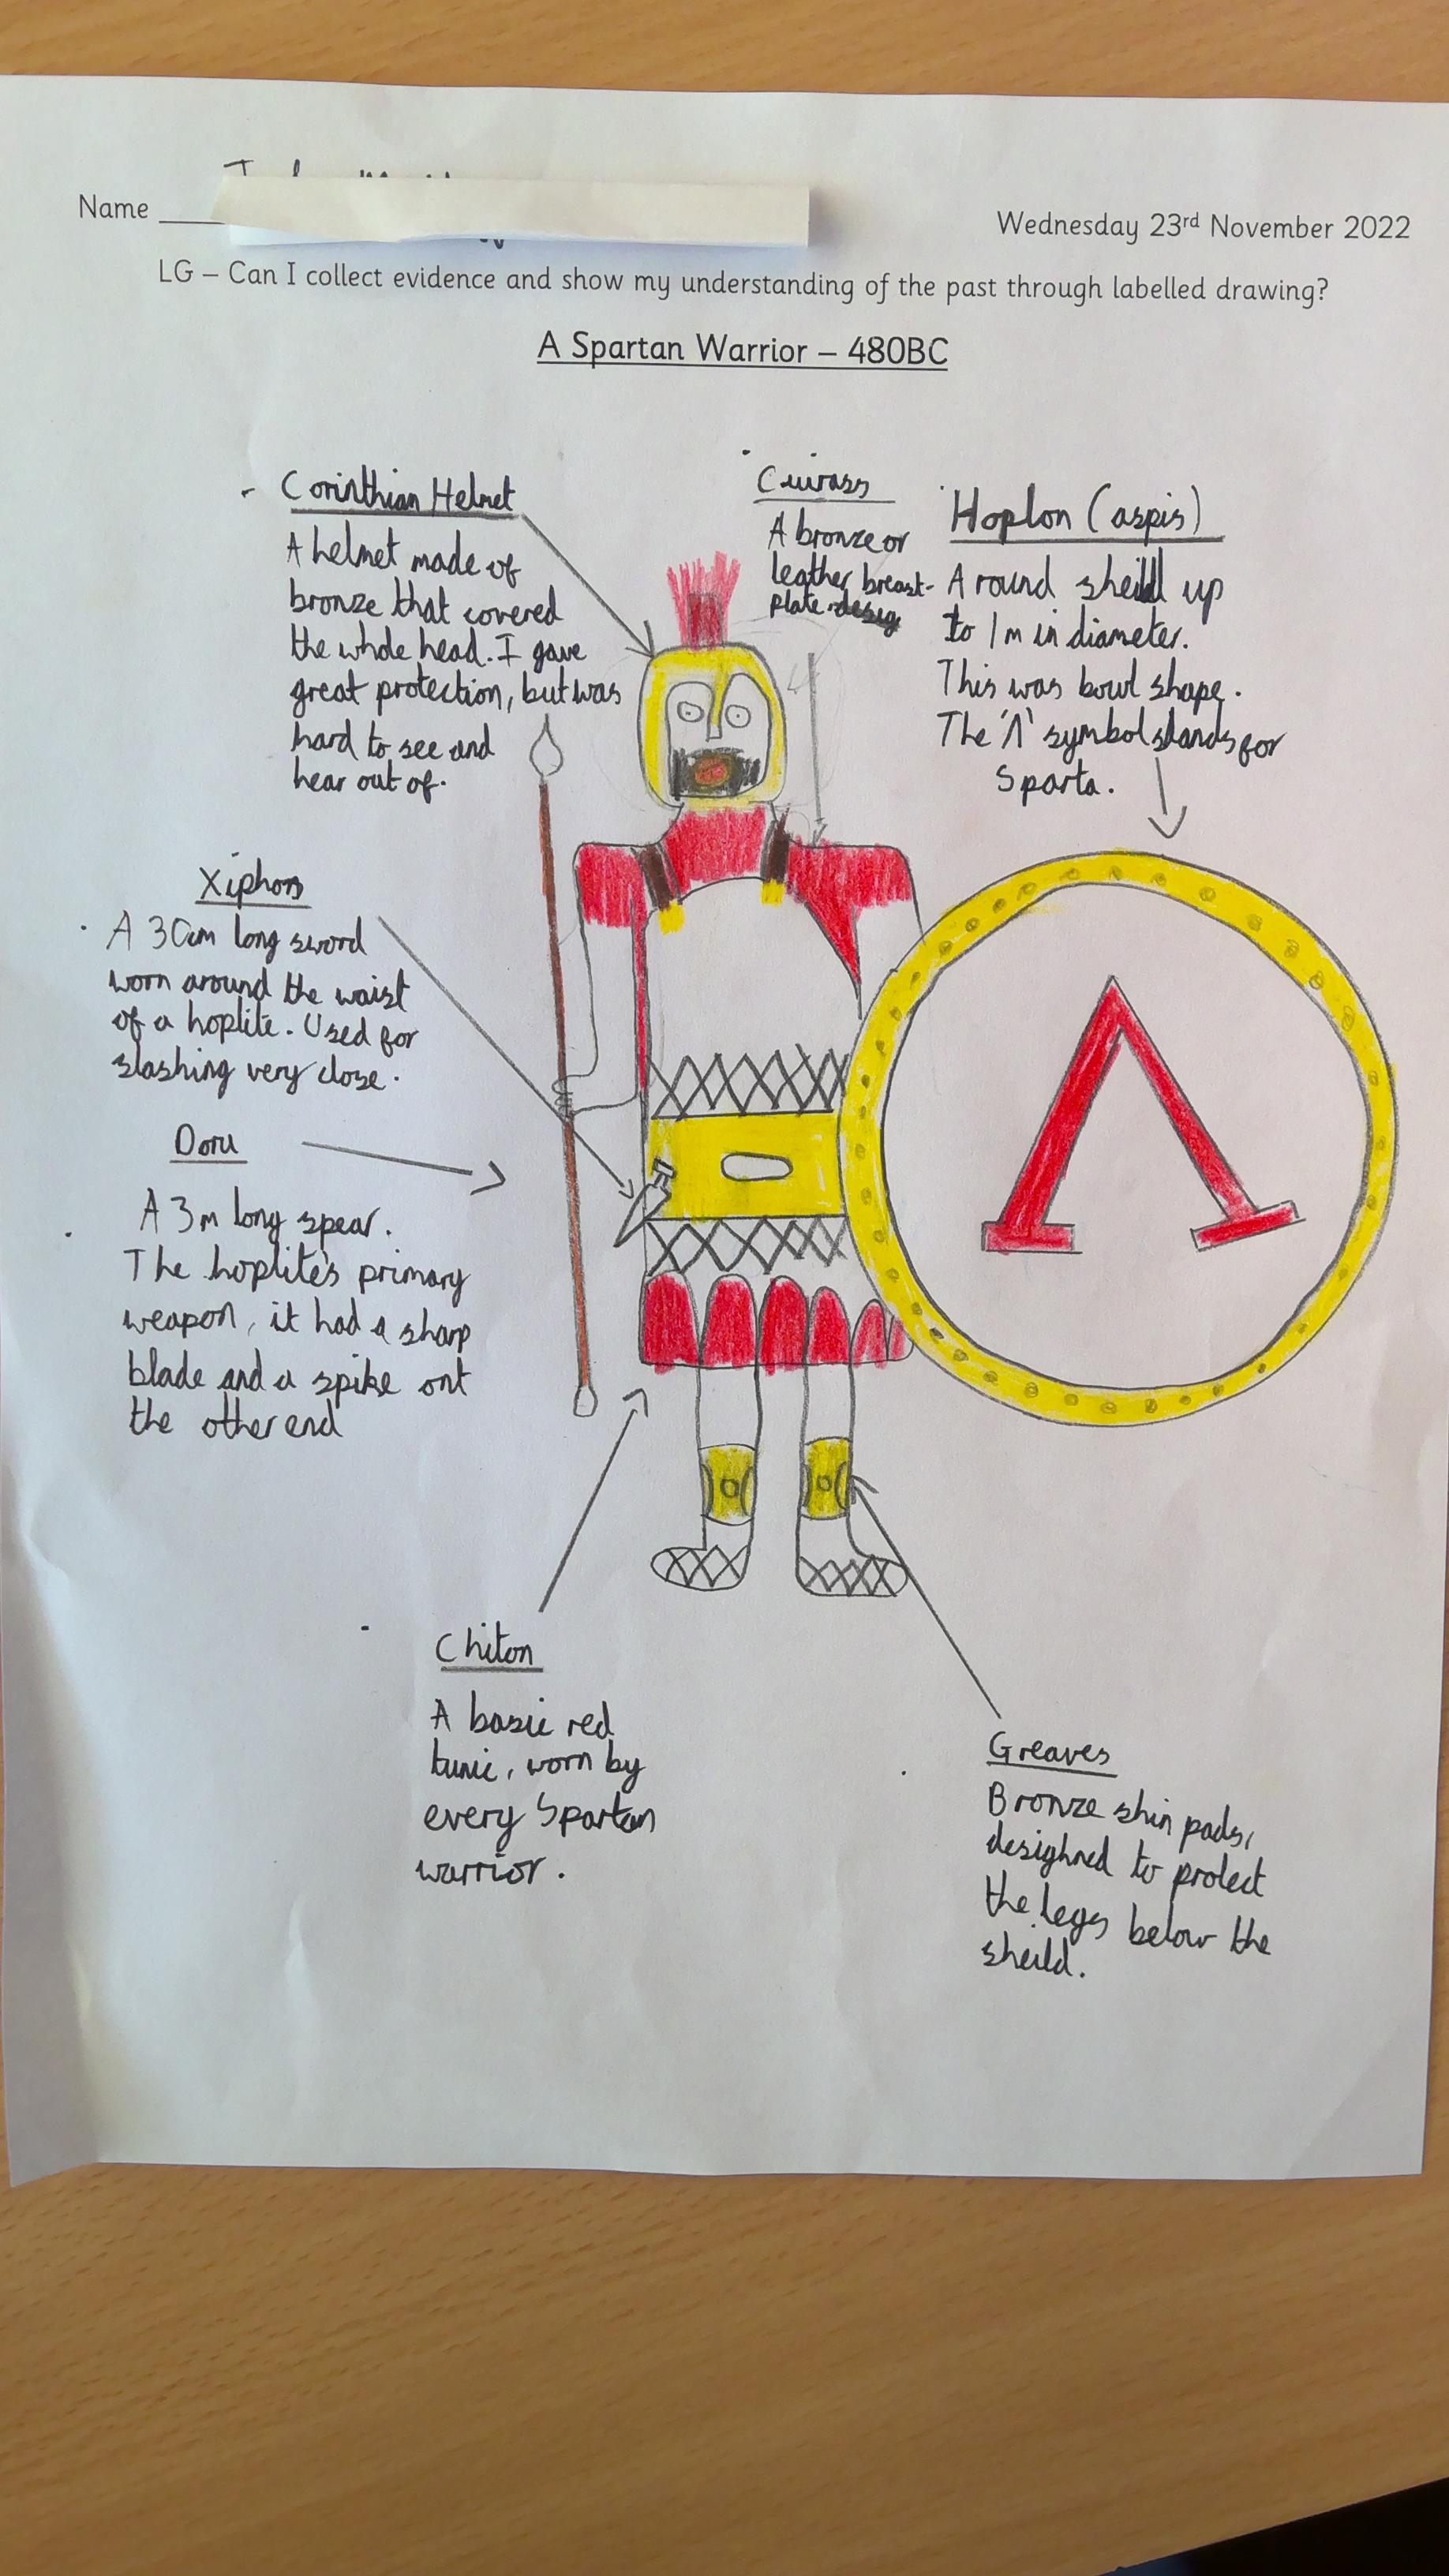 Name
Wednesday 23rd November 2022
LG – Can I collect evidence and show my understanding of the past through labelled drawing?
A Spartan Warrior – 480BC
Corinthian Helmet
A helmet made of
bronze that covered
the whole head. I gave
great protection, but was
hard to see and
hear out of.
Cuirass
A bronze or
leather breast-
plate
Hoplon (aspis)
A round sheild up
to 1m in diameter.
This was bowl shape.
The 'Λ' symbol stands for
Sparta.
Xiphos
A 30cm long sword
worn around the waist
of a hoplite. Used for
slashing very close.
Doru
A 3m long spear.
The hoplite's primary
weapon, it had a sharp
blade and a spike ont
the other end
Λ
Chiton
A basic red
tunic, worn by
every Spartan
warrior.
Greaves
Bronze shin pads,
desighned to protect
the legs below the
sheild.